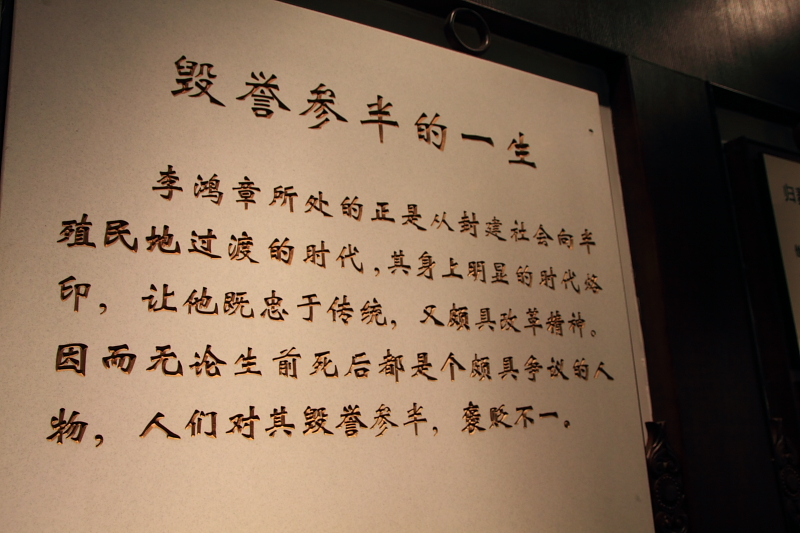 毁誉参半的一生
李鸿章所处的正是从封建社会向半
殖民地过渡的时代,其身上明显的时代烙
印,让他既忠于传统,又颇具改革精神。
因而无论生前死后都是个颇具争议的人
物,人们对其毁誉参半,褒贬不一。
归